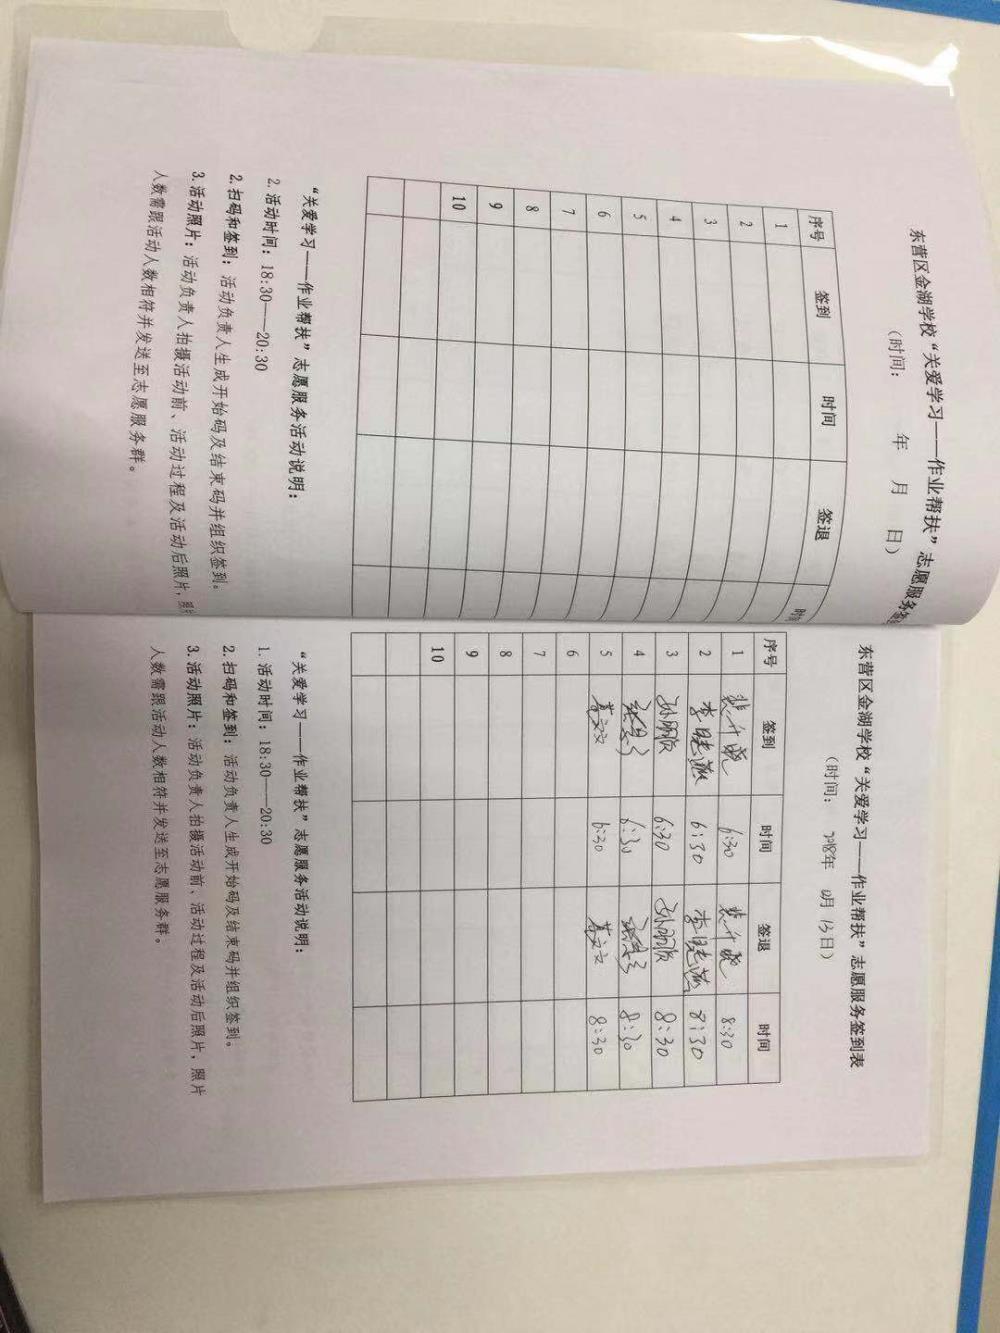 东营区金湖学校“关爱学习——作业帮扶”志愿服务签
（时间： 年 月 日）
序号 签到 时间 签退 时间
1
2
3
4
5
6
7
8
9
10
“关爱学习——作业帮扶”志愿服务活动说明：
2.活动时间：18:30——20:30
2.扫码和签到：活动负责人生成开始码及结束码并组织签到。
3.活动照片：活动负责人拍摄活动前、活动过程及活动后照片，照片
人数需跟活动人数相符并发送至志愿服务群。
东营区金湖学校“关爱学习——作业帮扶”志愿服务签到表
（时间： 2018年 月 13日）
序号 签到 时间 签退 时间
1 6:30 8:30
2 李 6:30 李 8:30
3 孙 6:30 孙 8:30
4 6:30 8:30
5 文文 6:30 文文 8:30
6
7
8
9
10
“关爱学习——作业帮扶”志愿服务活动说明：
1.活动时间：18:30——20:30
2.扫码和签到：活动负责人生成开始码及结束码并组织签到。
3.活动照片：活动负责人拍摄活动前、活动过程及活动后照片，照片
人数需跟活动人数相符并发送至志愿服务群。